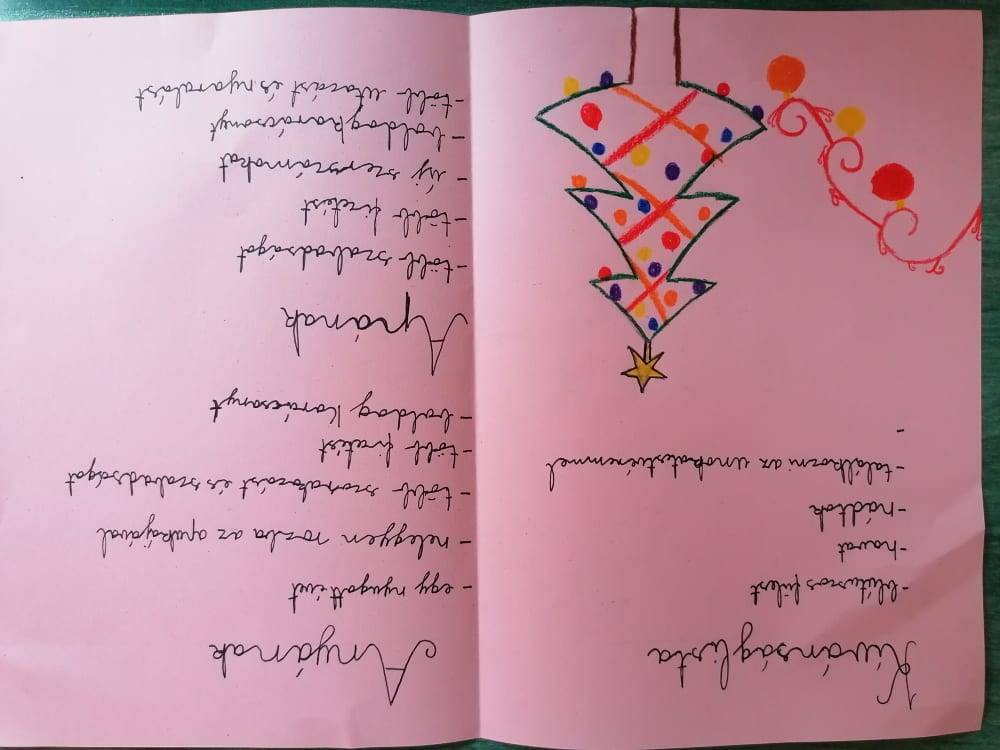 Kívánságlista
-blútuszos fülest
-havat
-
-találkozni az unokatestvéremmel
-
Anyának
- egy nyugott évet
- nelegyen roszba az apukájával
- több szorakozást és szabadságot
- több fizetést
- boldog karácsonyt
Apának
- több szabadságot
- több fizetést
- új szerszámokat
- boldog karácsonyt
- több utazást és nyaralást